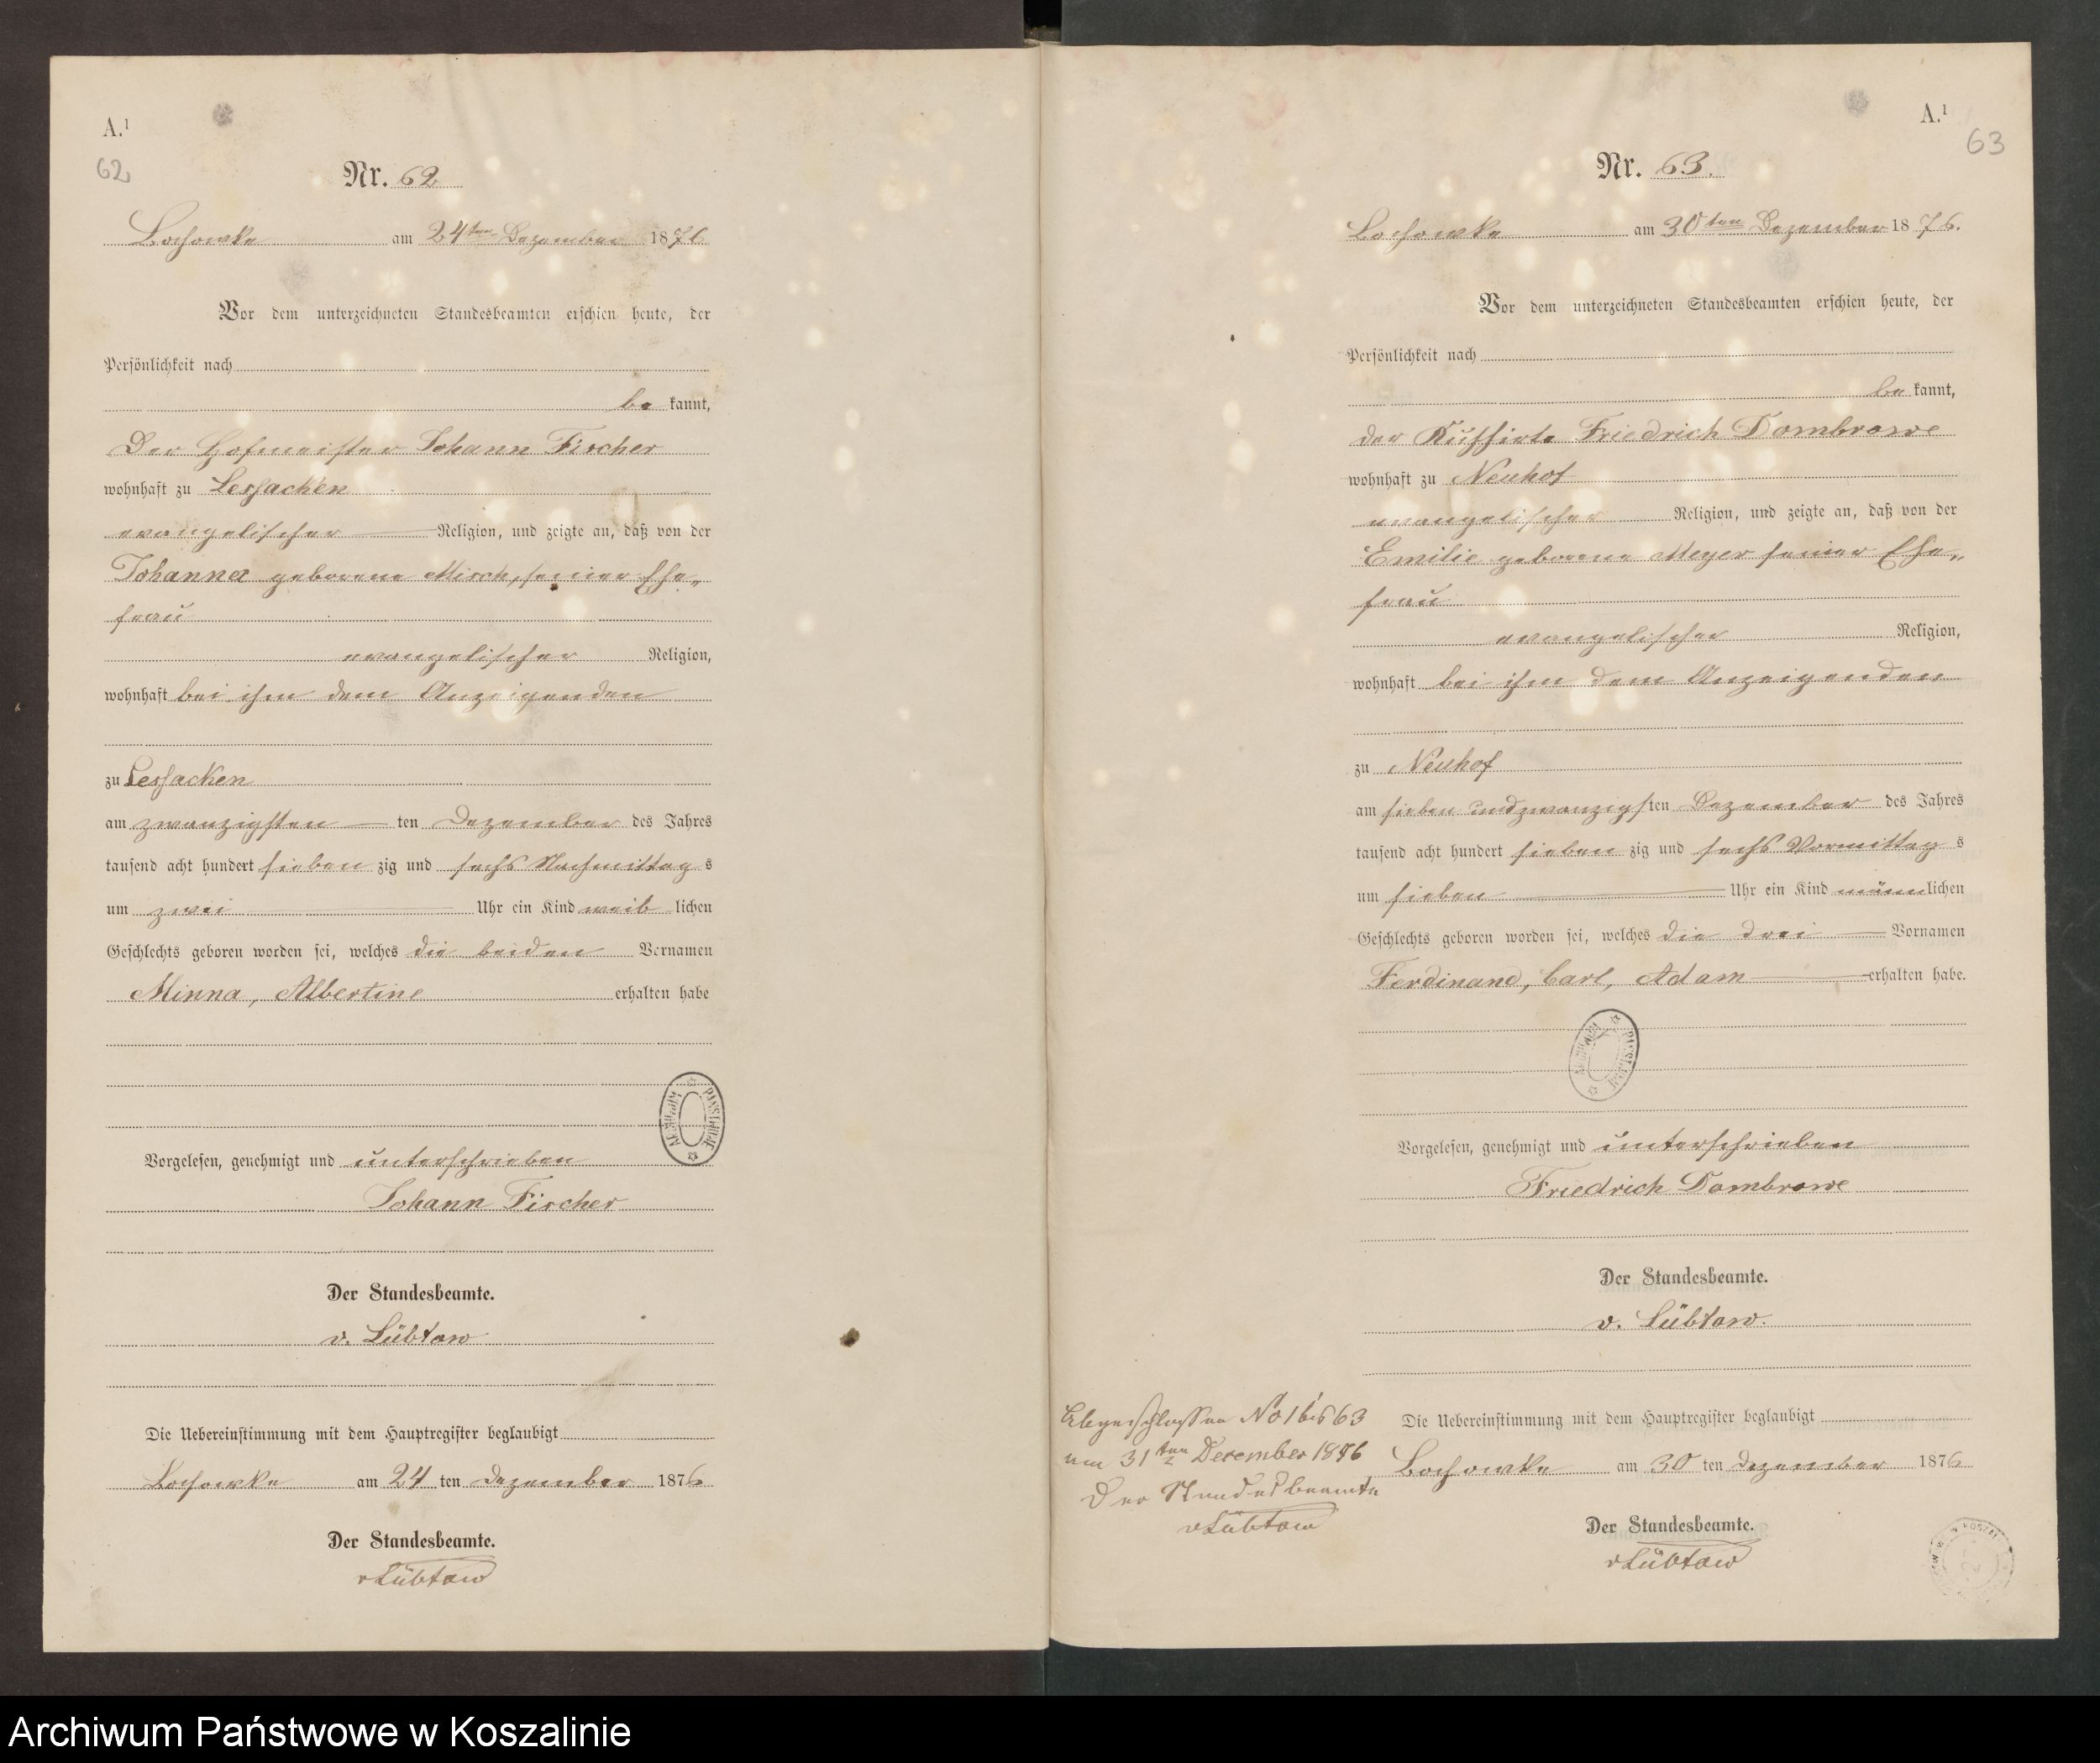 A.¹
62
Nr. 62
Lochowke am 24ten Dezember 1876
Vor dem unterzeichneten Standesbeamten erschien heute, der
Persönlichkeit nach
be kannt,
Der Hofmeister Johann Fischer
wohnhaft zu Lessacken
evangelischer Religion, und zeigte an, daß von der
Johanna geborene Misch, seiner Ehe„
frau
evangelischer Religion,
wohnhaft bei ihm dem Anzeigenden
zu Lessacken
am zwanzigsten ten Dezember des Jahres
tausend acht hundert sieben zig und sechs Nachmittag s
um zwei Uhr ein Kind weib lichen
Geschlechts geboren worden sei, welches die beiden Vornamen
Minna, Albertine erhalten habe
ARCHIWUM PAŃSTWOWE
Vorgelesen, genehmigt und unterschrieben
Johann Fischer
Der Standesbeamte.
v. Lübtow
Die Uebereinstimmung mit dem Hauptregister beglaubigt
Lochowke am 24 ten Dezember 1876
Der Standesbeamte.
vLübtow
A.¹
63
Nr. 63.
Lochowke am 30ten Dezember 1876.
Vor dem unterzeichneten Standesbeamten erschien heute, der
Persönlichkeit nach
be kannt,
der Kuhhirte Friedrich Dombrowe
wohnhaft zu Neuhof
evangelischer Religion, und zeigte an, daß von der
Emilie geborene Meyer seiner Ehe„
frau
evangelischer Religion,
wohnhaft bei ihm dem Anzeigenden
zu Neuhof
am sieben undzwanzigsten Dezember des Jahres
tausend acht hundert sieben zig und sechs Vormittag s
um sieben Uhr ein Kind männlichen
Geschlechts geboren worden sei, welches die drei Vornamen
Ferdinand, Carl, Adam erhalten habe.
ARCHIWUM PAŃSTWOWE
Vorgelesen, genehmigt und unterschrieben
Friedrich Dombrowe
Der Standesbeamte.
v. Lübtow.
Die Uebereinstimmung mit dem Hauptregister beglaubigt
Lochowke am 30 ten Dezember 1876
Der Standesbeamte.
vLübtow
Abgeschlossen No 1 bis 63
am 31ten December 1876
Der Standesbeamte
vLübtow
Archiwum Państwowe w Koszalinie